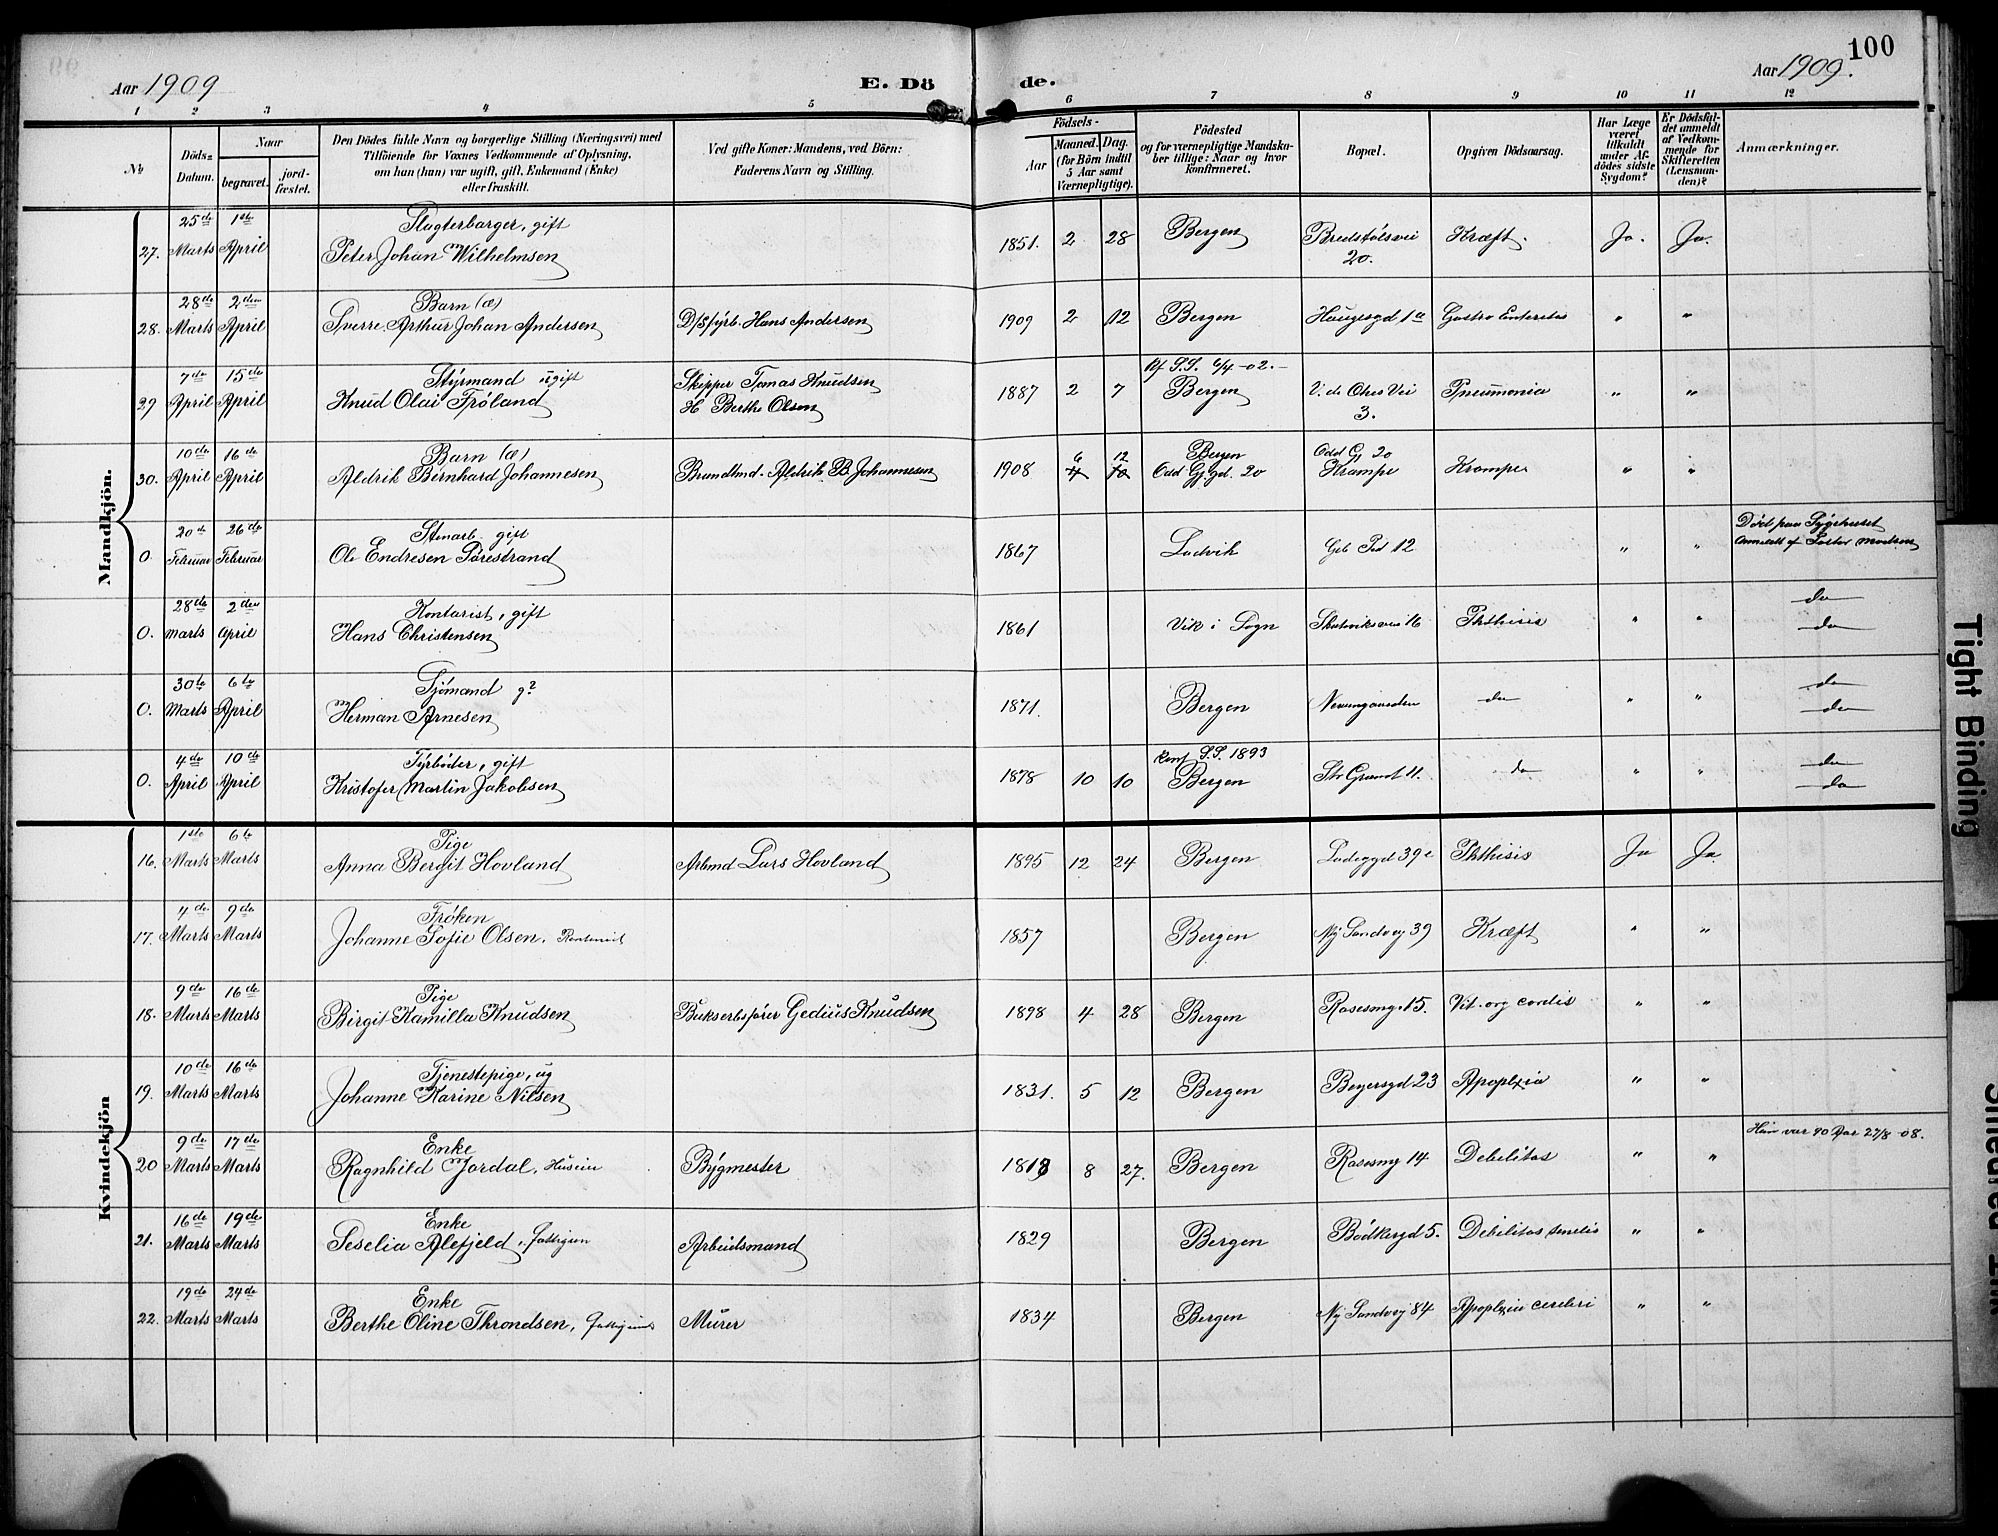 Aar 1909
E. Dö
de.
Aar 1909.
100
1 2 3 4 5 6 7 8 9 10 11 12
No
Döds-
Datum.
Naar
begravet.
jord-
fæstet.
Den Dödes fulde Navn og borgerlige Stilling (Næringsvei) med
Tilföiende for Voxnes Vedkommende af Oplysning,
om han (hun) var ugift, gift, Enkemand (Enke)
eller fraskilt.
Ved gifte Koner: Mandens, ved Börn:
Faderens Navn og Stilling.
Födsels-
Aar
Maaned. Dag.
(for Börn indtil
5 Aar samt
Værnepligtige).
Födested
og for værnepligtige Mandska-
ber tillige: Naar og hvor
konfirmeret.
Bopæl.
Opgiven Dödsaarsag.
Har Læge
været
tilkaldt
under Af-
dödes sidste
Sygdom?
Er Dödsfal-
det anmeldt
af Vedkom-
mende for
Skifteretten
(Lensman-
den)?
Anmærkninger.
Mandkjön.
27. 25de Marts 1ste April Slagterborger, gift
Peter Johan Wilhelmsen 1851. 2 28 Bergen Bredstølsvei 20. Kræft. Ja. Ja.
28. 28de Marts 2den April Barn (æ)
Sverre Arthur Johan Andersen D/Sfyrb. Hans Andersen 1909 2 12 Bergen Haugesgd 1a Gastro Enteritis " "
29 7de April 15de April Styrmand ugift
Knud Olai Frøland Skipper Tomas Knudsen
H Berthe Olsen 1887 2 7 Kf S.S. 6/4-02.-
Bergen V. de Ohes Vei 3. Pneumonia " "
30. 10de April 16de April Barn (æ)
Aldrik Bernhard Johannesen Brandkmd. Aldrik B. Johannesen 1908 6 12 Bergen
Odd Gj.gd. 20 Odd Gj 20
Krampe Krampe " "
0. 20de Februar 26de Februar Stenarb. gift
Ole Endresen Sørestrand 1867 Ladvik 12 " " Död paa Sygehuset
Anmeldt af Pastor
0. 28de Marts 2den April Kontorist, gift
Hans Christensen 1861 Vik i Sogn Skuteviksvei 16 Phthisis " " do
do
0. 30te Marts 6te April Sjømand g?
Herman Arnesen 1871. Bergen do " " do
do
0. 4de April 10de April Fyrbøder, gift
Kristofer Martin Jakobsen 1878 10 10 Konf S.S. 1893
Bergen 11. do " " do
do
Kvindekjön
16. 1ste Marts 6te Marts Pige
Anna Bergit Hovland Arbmd Lars Hovland 1895 12 24 Bergen Ladeggd 39e Phthisis Ja Ja
17. 4de Marts 9de Marts Frøken
Johanne Sofie Olsen. 1857 Bergen Ny Sandvg 39 Kræft " "
18. 9de Marts 16de Marts Pige
Birgit Kamilla Knudsen Buksertsfører Gedius Knudsen 1898 4 28 Bergen Rosesmg. 15. Vit. org cordis " "
19. 10de Marts 16de Marts Tjenestepige, ug
Johanne Karine Nilsen 1831. 5 12 Bergen Beyersgd 23 Apoplxia " "
20 9de Marts 17de Marts Enke
Ragnhild Jordal, Huseier Bygmester 1818 8 27. Bergen Rosesmg 14 Debilitas " " Hun var 90 Aar 27/8-08.
21. 16de Marts 19de Marts Enke
Seselia Alefjeld, fattiglem Arbeidsmand 1829 Bergen Bødkergd 5. Debilitas senelis " "
22. 19de Marts 24de Marts Enke
Berthe Oline Throndsen, Murer 1834 Bergen Ny Sandvg 84 Apoplxia cerebri " "
Tight Binding
Smeared Ink